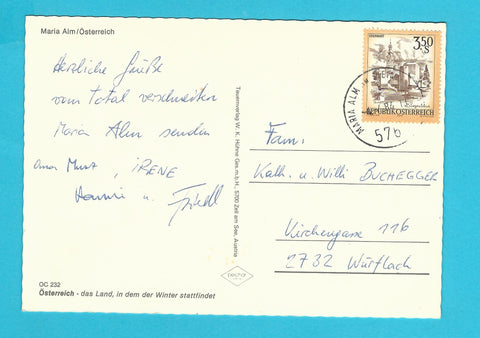 Maria Alm/Österreich
Herzliche Grüße
vom total verschneiten
Maria Alm senden
IRENE
Hanni u. Friedl
OC 232
Österreich - das Land, in dem der Winter stattfindet
Tauernverlag W. K. Hühne Ges.m.b.H., 5700 Zell am See, Austria
3,50
S
REPUBLIK ÖSTERREICH
MARIA ALM
576
Fam.
Kath. u. Willi BUCHEGGER
Kirchengasse 116
2732 Würflach